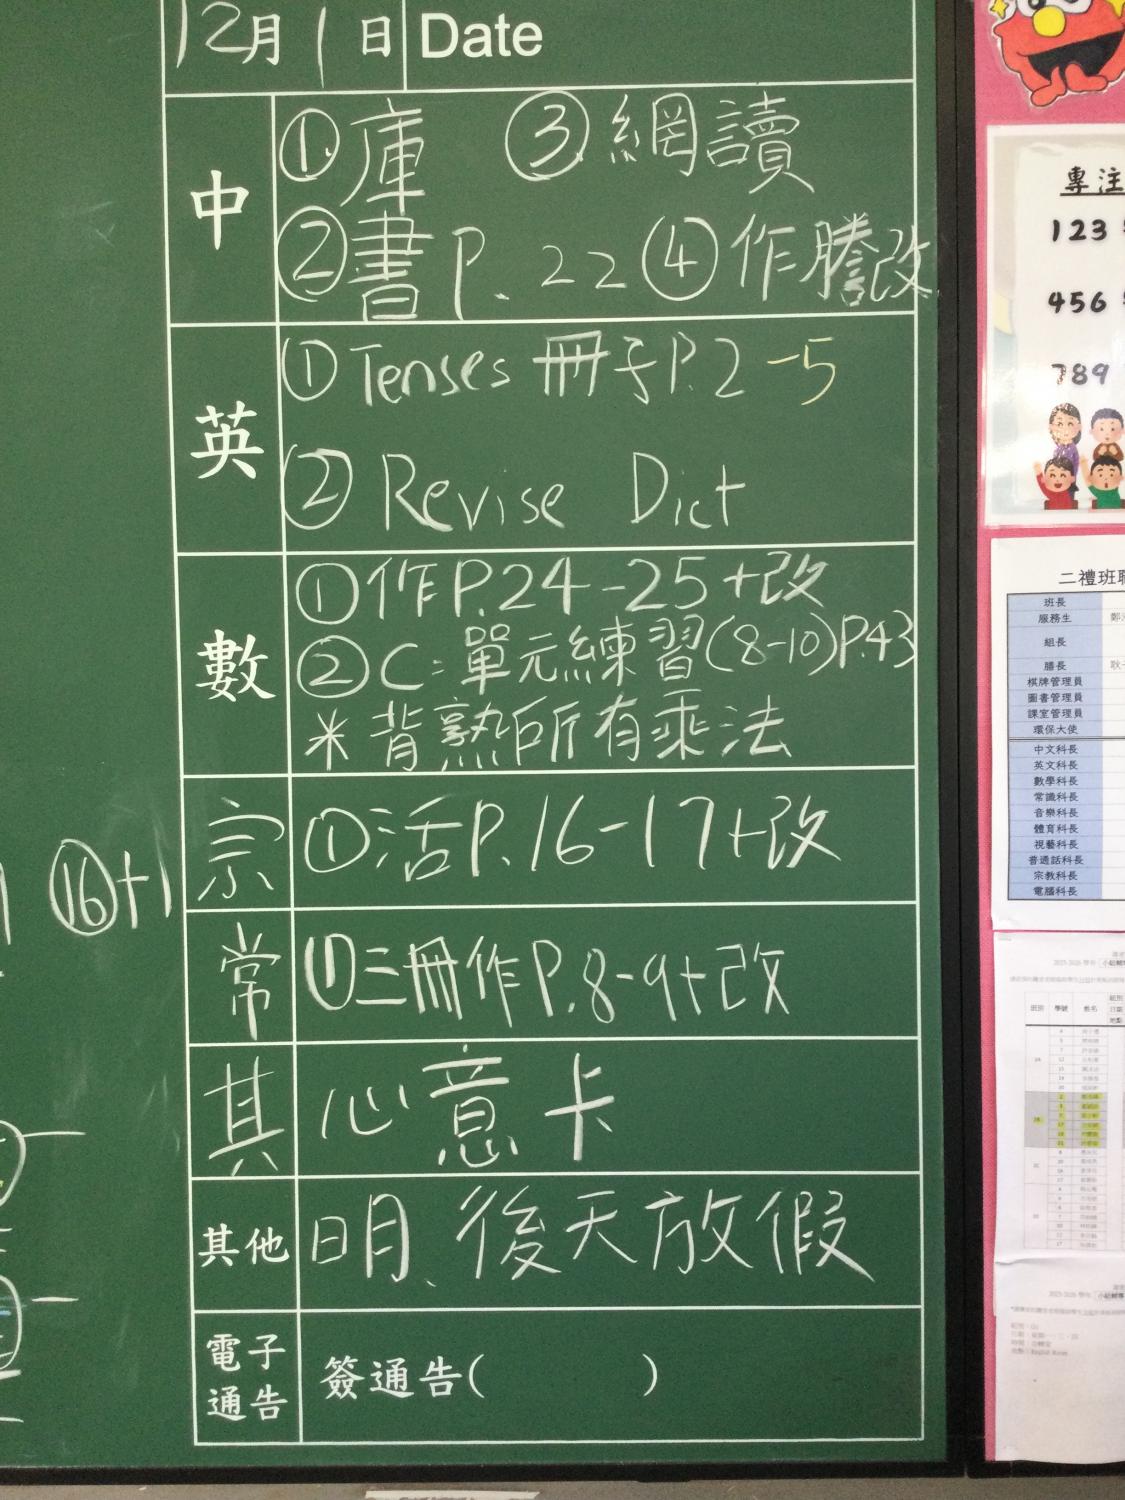 12月1日 Date
中
①庫 ③網讀
②書P.22 ④作謄改
英
①Tenses 冊子P.2-5
②Revise Dict
數
①作P.24-25+改
②C:單元練習(8-10)P.43
*背熟所有乘法
宗
①活P.16-17+改
常
①三冊作P.8-9+改
其
心意卡
其他
明、後天放假
電子
通告
簽通告( )
⑯+1
專注
123
456
789
二禮班
班長
服務生
組長
膳長
棋牌管理員
圖書管理員
課室管理員
環保大使
中文科長
英文科長
數學科長
常識科長
音樂科長
體育科長
視藝科長
普通話科長
宗教科長
電腦科長
班別 學號 姓名